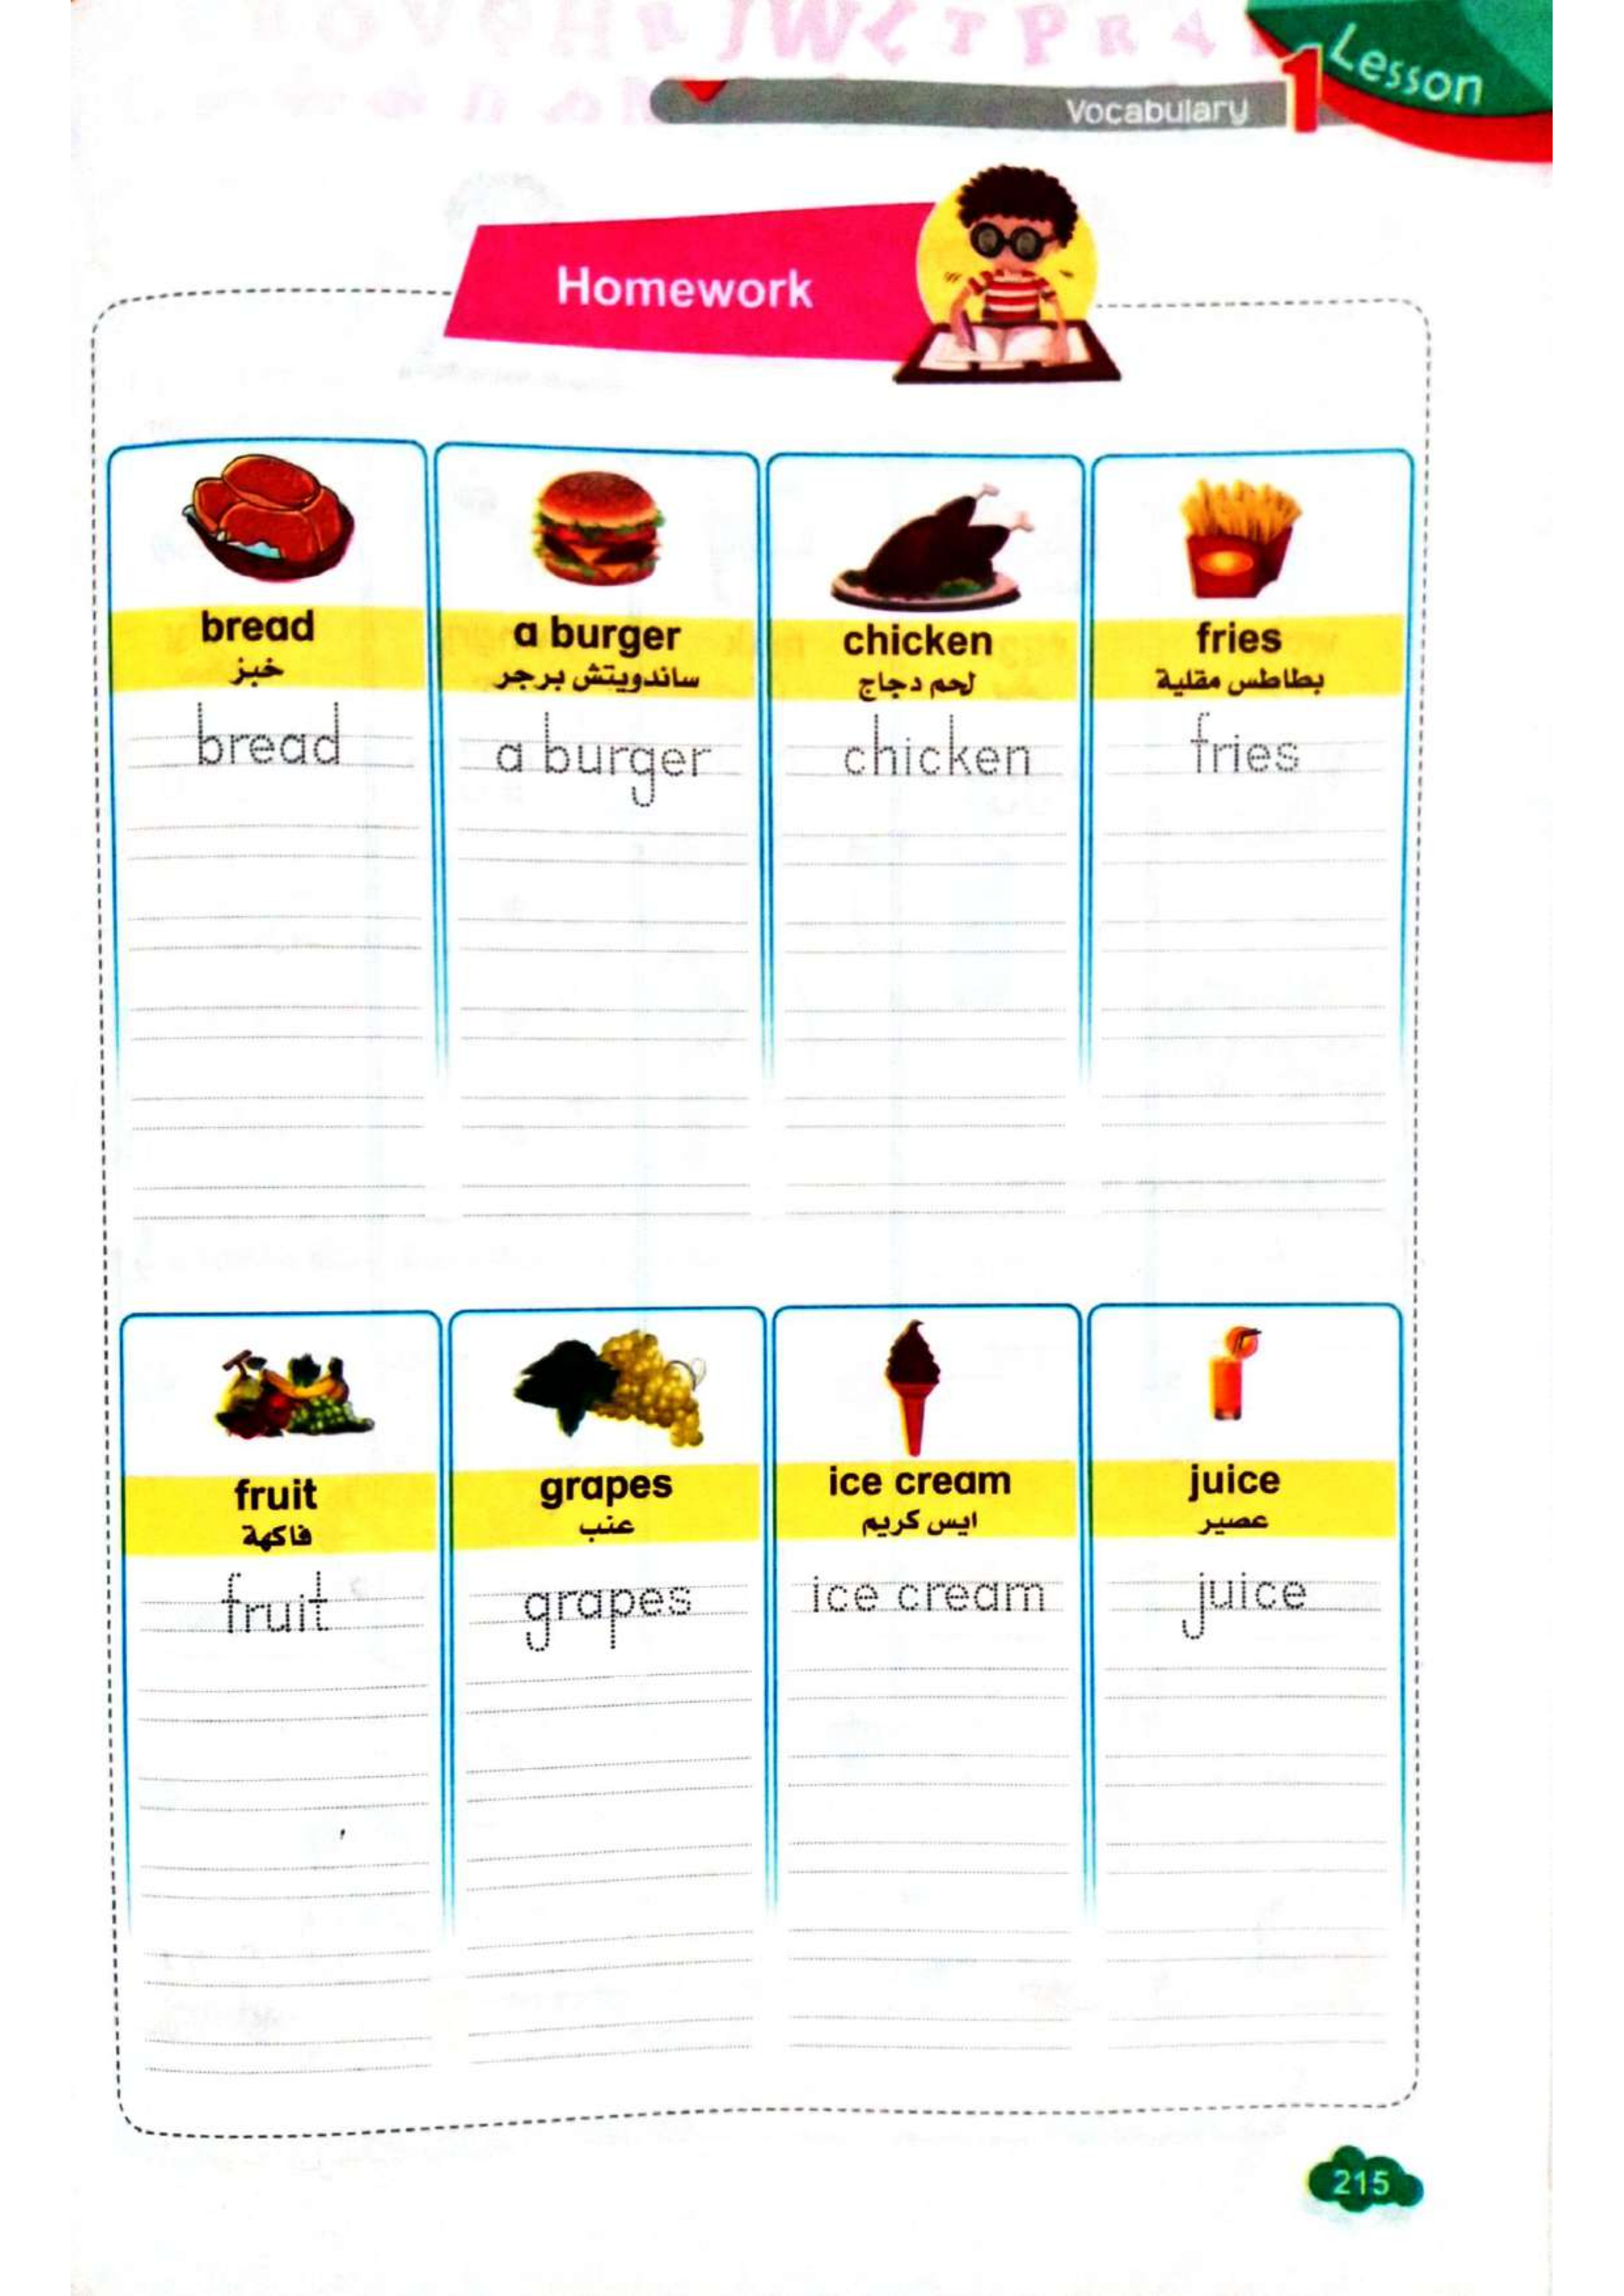 Lesson
1
Vocabulary
Homework
bread
خبز
bread
a burger
ساندويتش برجر
a burger
chicken
لحم دجاج
chicken
fries
بطاطس مقلية
fries
fruit
فاكهة
fruit
grapes
عنب
grapes
ice cream
ايس كريم
ice cream
juice
عصير
juice
215